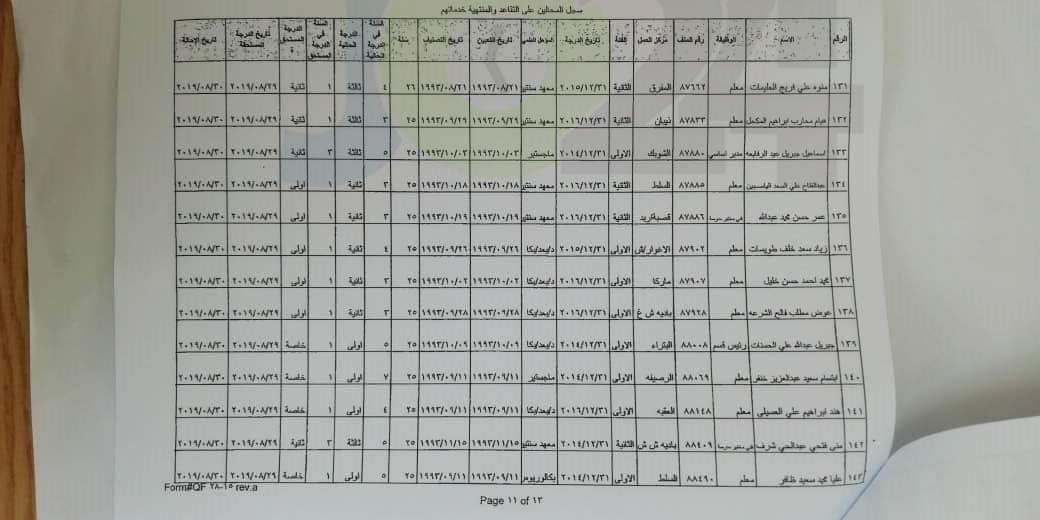 سجل المحالين على التقاعد والمنتهية خدماتهم
الرقم الاسم الوظيفة رقم الملف مركز العمل الفئة تاريخ الدرجة المؤهل العلمي تاريخ التعيين تاريخ التصنيف سنة السنة في الدرجة الحالية الدرجة الحالية السنة في الدرجة المستحق الدرجة المستحق ة تاريخ الدرجة المستحقة تاريخ الإحالة
١٣١ منوه علي فريج العليمات معلم ٨٧٦٦٢ المفرق الثانية ٢٠١٥/١٢/٣١ معهد سنتين ١٩٩٣/٠٨/٢١ ١٩٩٣/٠٨/٢١ ٢٦ ٤ ثالثة ١ ثانية ٢٠١٩/٠٨/٢٩ ٢٠١٩/٠٨/٣٠
١٣٢ هيام محارب ابراهيم المكحل معلم ٨٧٨٣٣ ذيبان الثانية ٢٠١٦/١٢/٣١ معهد سنتين ١٩٩٣/٠٩/٢٩ ١٩٩٣/٠٩/٢٩ ٢٥ ٣ ثالثة ١ ثانية ٢٠١٩/٠٨/٢٩ ٢٠١٩/٠٨/٣٠
١٣٣ اسماعيل جبريل عبد الرفايعه مدير اساسي ٨٧٨٨٠ الشوبك الاولى ٢٠١٤/١٢/٣١ ماجستير ١٩٩٣/١٠/٠٣ ١٩٩٣/١٠/٠٣ ٢٥ ٥ ثالثة ٣ ثانية ٢٠١٩/٠٨/٢٩ ٢٠١٩/٠٨/٣٠
١٣٤ عبدالفتاح علي السعد معلم ٨٧٨٨٥ السلط الثانية ٢٠١٦/١٢/٣١ معهد سنتين ١٩٩٣/١٠/١٨ ١٩٩٣/١٠/١٨ ٢٥ ٣ ثانية ١ اولى ٢٠١٩/٠٨/٢٩ ٢٠١٩/٠٨/٣٠
١٣٥ عمر حسن محمد عبدالله ٨٧٨٨٦ قصبة اربد الثانية ٢٠١٦/١٢/٣١ معهد سنتين ١٩٩٣/١٠/١٩ ١٩٩٣/١٠/١٩ ٢٥ ٣ ثانية ١ اولى ٢٠١٩/٠٨/٢٩ ٢٠١٩/٠٨/٣٠
١٣٦ زياد سعد خلف طويسات معلم ٨٧٩٠٢ الاغوار/ش الاولى ٢٠١٥/١٢/٣١ د/بعد/بكا ١٩٩٣/٠٩/٢٦ ١٩٩٣/٠٩/٢٦ ٢٥ ٤ ثانية ١ اولى ٢٠١٩/٠٨/٢٩ ٢٠١٩/٠٨/٣٠
١٣٧ محمد احمد حسن خليل معلم ٨٧٩٠٧ ماركا الاولى ٢٠١٦/١٢/٣١ د/بعد/بكا ١٩٩٣/١٠/٠٢ ١٩٩٣/١٠/٠٢ ٢٥ ٣ ثانية ١ اولى ٢٠١٩/٠٨/٢٩ ٢٠١٩/٠٨/٣٠
١٣٨ عوض مطلب فالح الشرعه معلم ٨٧٩٢٨ باديه ش غ الاولى ٢٠١٦/١٢/٣١ د/بعد/بكا ١٩٩٣/٠٩/٢٨ ١٩٩٣/٠٩/٢٨ ٢٥ ٣ ثانية ١ اولى ٢٠١٩/٠٨/٢٩ ٢٠١٩/٠٨/٣٠
١٣٩ جبريل عبدالله علي الحسنات رئيس قسم ٨٨٠٠٨ البتراء الاولى ٢٠١٤/١٢/٣١ د/بعد/بكا ١٩٩٣/١٠/٠٩ ١٩٩٣/١٠/٠٩ ٢٥ ٥ اولى ١ خاصة ٢٠١٩/٠٨/٢٩ ٢٠١٩/٠٨/٣٠
١٤٠ ابتسام سعيد عبدالعزيز خنفر معلم ٨٨٠٦٩ الرصيفه الاولى ٢٠١٤/١٢/٣١ ماجستير ١٩٩٣/٠٩/١١ ١٩٩٣/٠٩/١١ ٢٥ ٧ اولى ١ خاصة ٢٠١٩/٠٨/٢٩ ٢٠١٩/٠٨/٣٠
١٤١ هند ابراهيم علي العسيلي معلم ٨٨١٤٨ العقبه الاولى ٢٠١٦/١٢/٣١ د/بعد/بكا ١٩٩٣/٠٩/١١ ١٩٩٣/٠٩/١١ ٢٥ ٤ اولى ١ خاصة ٢٠١٩/٠٨/٢٩ ٢٠١٩/٠٨/٣٠
١٤٢ منى فتحي عبدالحي شرف ٨٨٤٠٩ باديه ش ش الثانية ٢٠١٤/١٢/٣١ معهد سنتين ١٩٩٣/١١/١٥ ١٩٩٣/١١/١٥ ٢٥ ٥ ثالثة ٣ ثانية ٢٠١٩/٠٨/٢٩ ٢٠١٩/٠٨/٣٠
١٤٣ عليا محمد سعيد ظافر معلم ٨٨٤٩٠ السلط الاولى ٢٠١٤/١٢/٣١ بكالوريوس ١٩٩٣/٠٩/١١ ١٩٩٣/٠٩/١١ ٢٥ ٥ اولى ١ خاصة ٢٠١٩/٠٨/٢٩ ٢٠١٩/٠٨/٣٠
Form#QF ٢٨-١٥ rev.a
Page ١١ of ١٣